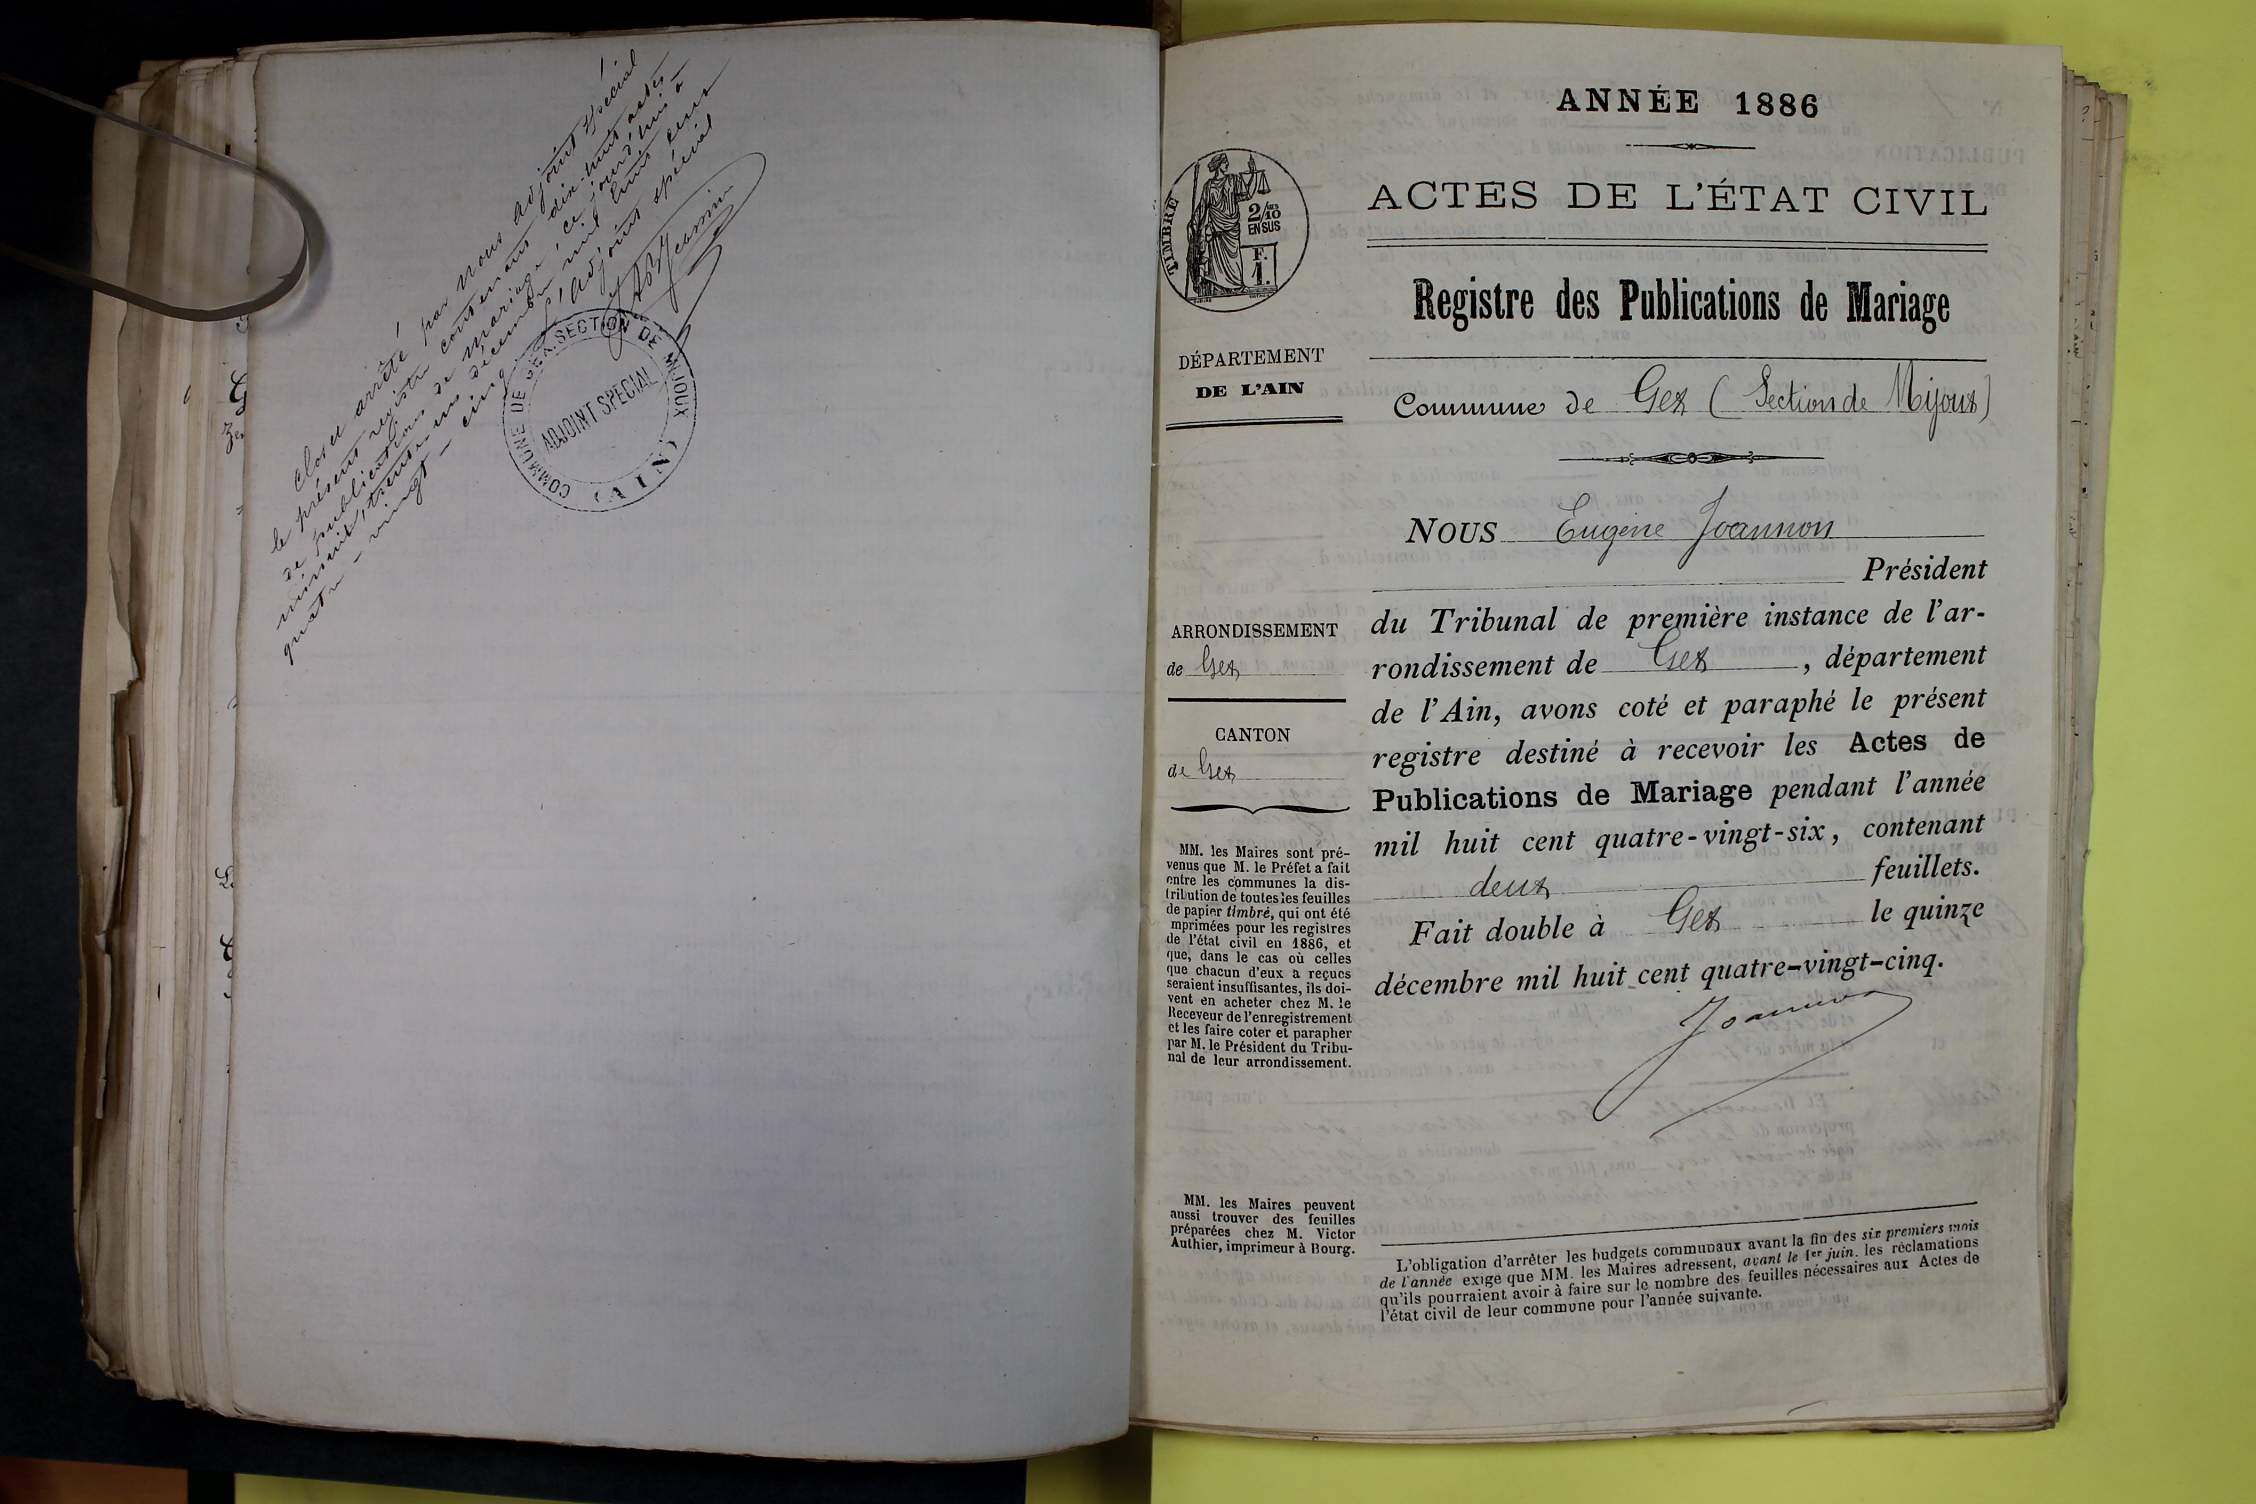 Clos et arrêté par nous adjoint spécial
le présent registre contenant dix-huit actes
de publications de mariage, ce jourd'hui à
minuit, trente-un décembre mil huit cent
quatre-vingt-cinq. L'adjoint spécial
COMMUNE DE GEX. SECTION DE MIJOUX
ADJOINT SPÉCIAL
(AIN)
ANNÉE 1886
ACTES DE L'ÉTAT CIVIL
Registre des Publications de Mariage
Commune de Gex (Section de Mijoux)
TIMBRE
2/10
EN SUS
F.
1.
DÉPARTEMENT
DE L'AIN
ARRONDISSEMENT
de Gex
CANTON
de Gex
MM. les Maires sont pré-
venus que M. le Préfet a fait
entre les communes la dis-
tribution de toutes les feuilles
de papier timbré, qui ont été
imprimées pour les registres
de l'état civil en 1886, et
que, dans le cas où celles
que chacun d'eux a reçues
seraient insuffisantes, ils doi-
vent en acheter chez M. le
Receveur de l'enregistrement
et les faire coter et parapher
par M. le Président du Tribu-
nal de leur arrondissement.
MM. les Maires peuvent
aussi trouver des feuilles
préparées chez M. Victor
Authier, imprimeur à Bourg.
NOUS Eugène Joannon
Président
du Tribunal de première instance de l'ar-
rondissement de Gex, département
de l'Ain, avons coté et paraphé le présent
registre destiné à recevoir les Actes de
Publications de Mariage pendant l'année
mil huit cent quatre-vingt-six, contenant
deux feuillets.
Fait double à Gex le quinze
décembre mil huit cent quatre-vingt-cinq.
Joannon
L'obligation d'arrêter les budgets communaux avant la fin des six premiers mois
de l'année exige que MM. les Maires adressent, avant le 1er juin, les réclamations
qu'ils pourraient avoir à faire sur le nombre des feuilles nécessaires aux Actes de
l'état civil de leur commune pour l'année suivante.